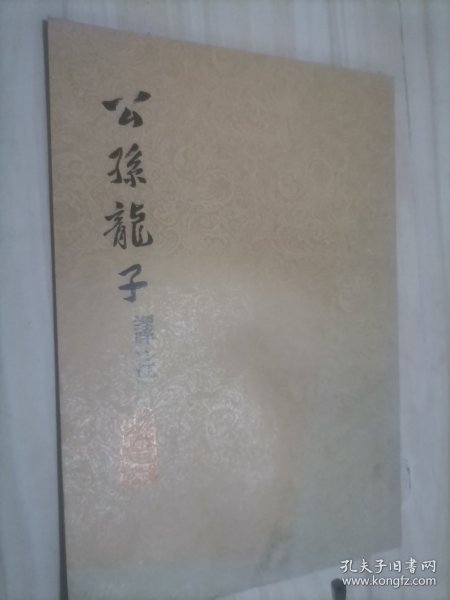 公孫龍子譯注
孔夫子旧书网
www.kongfz.com